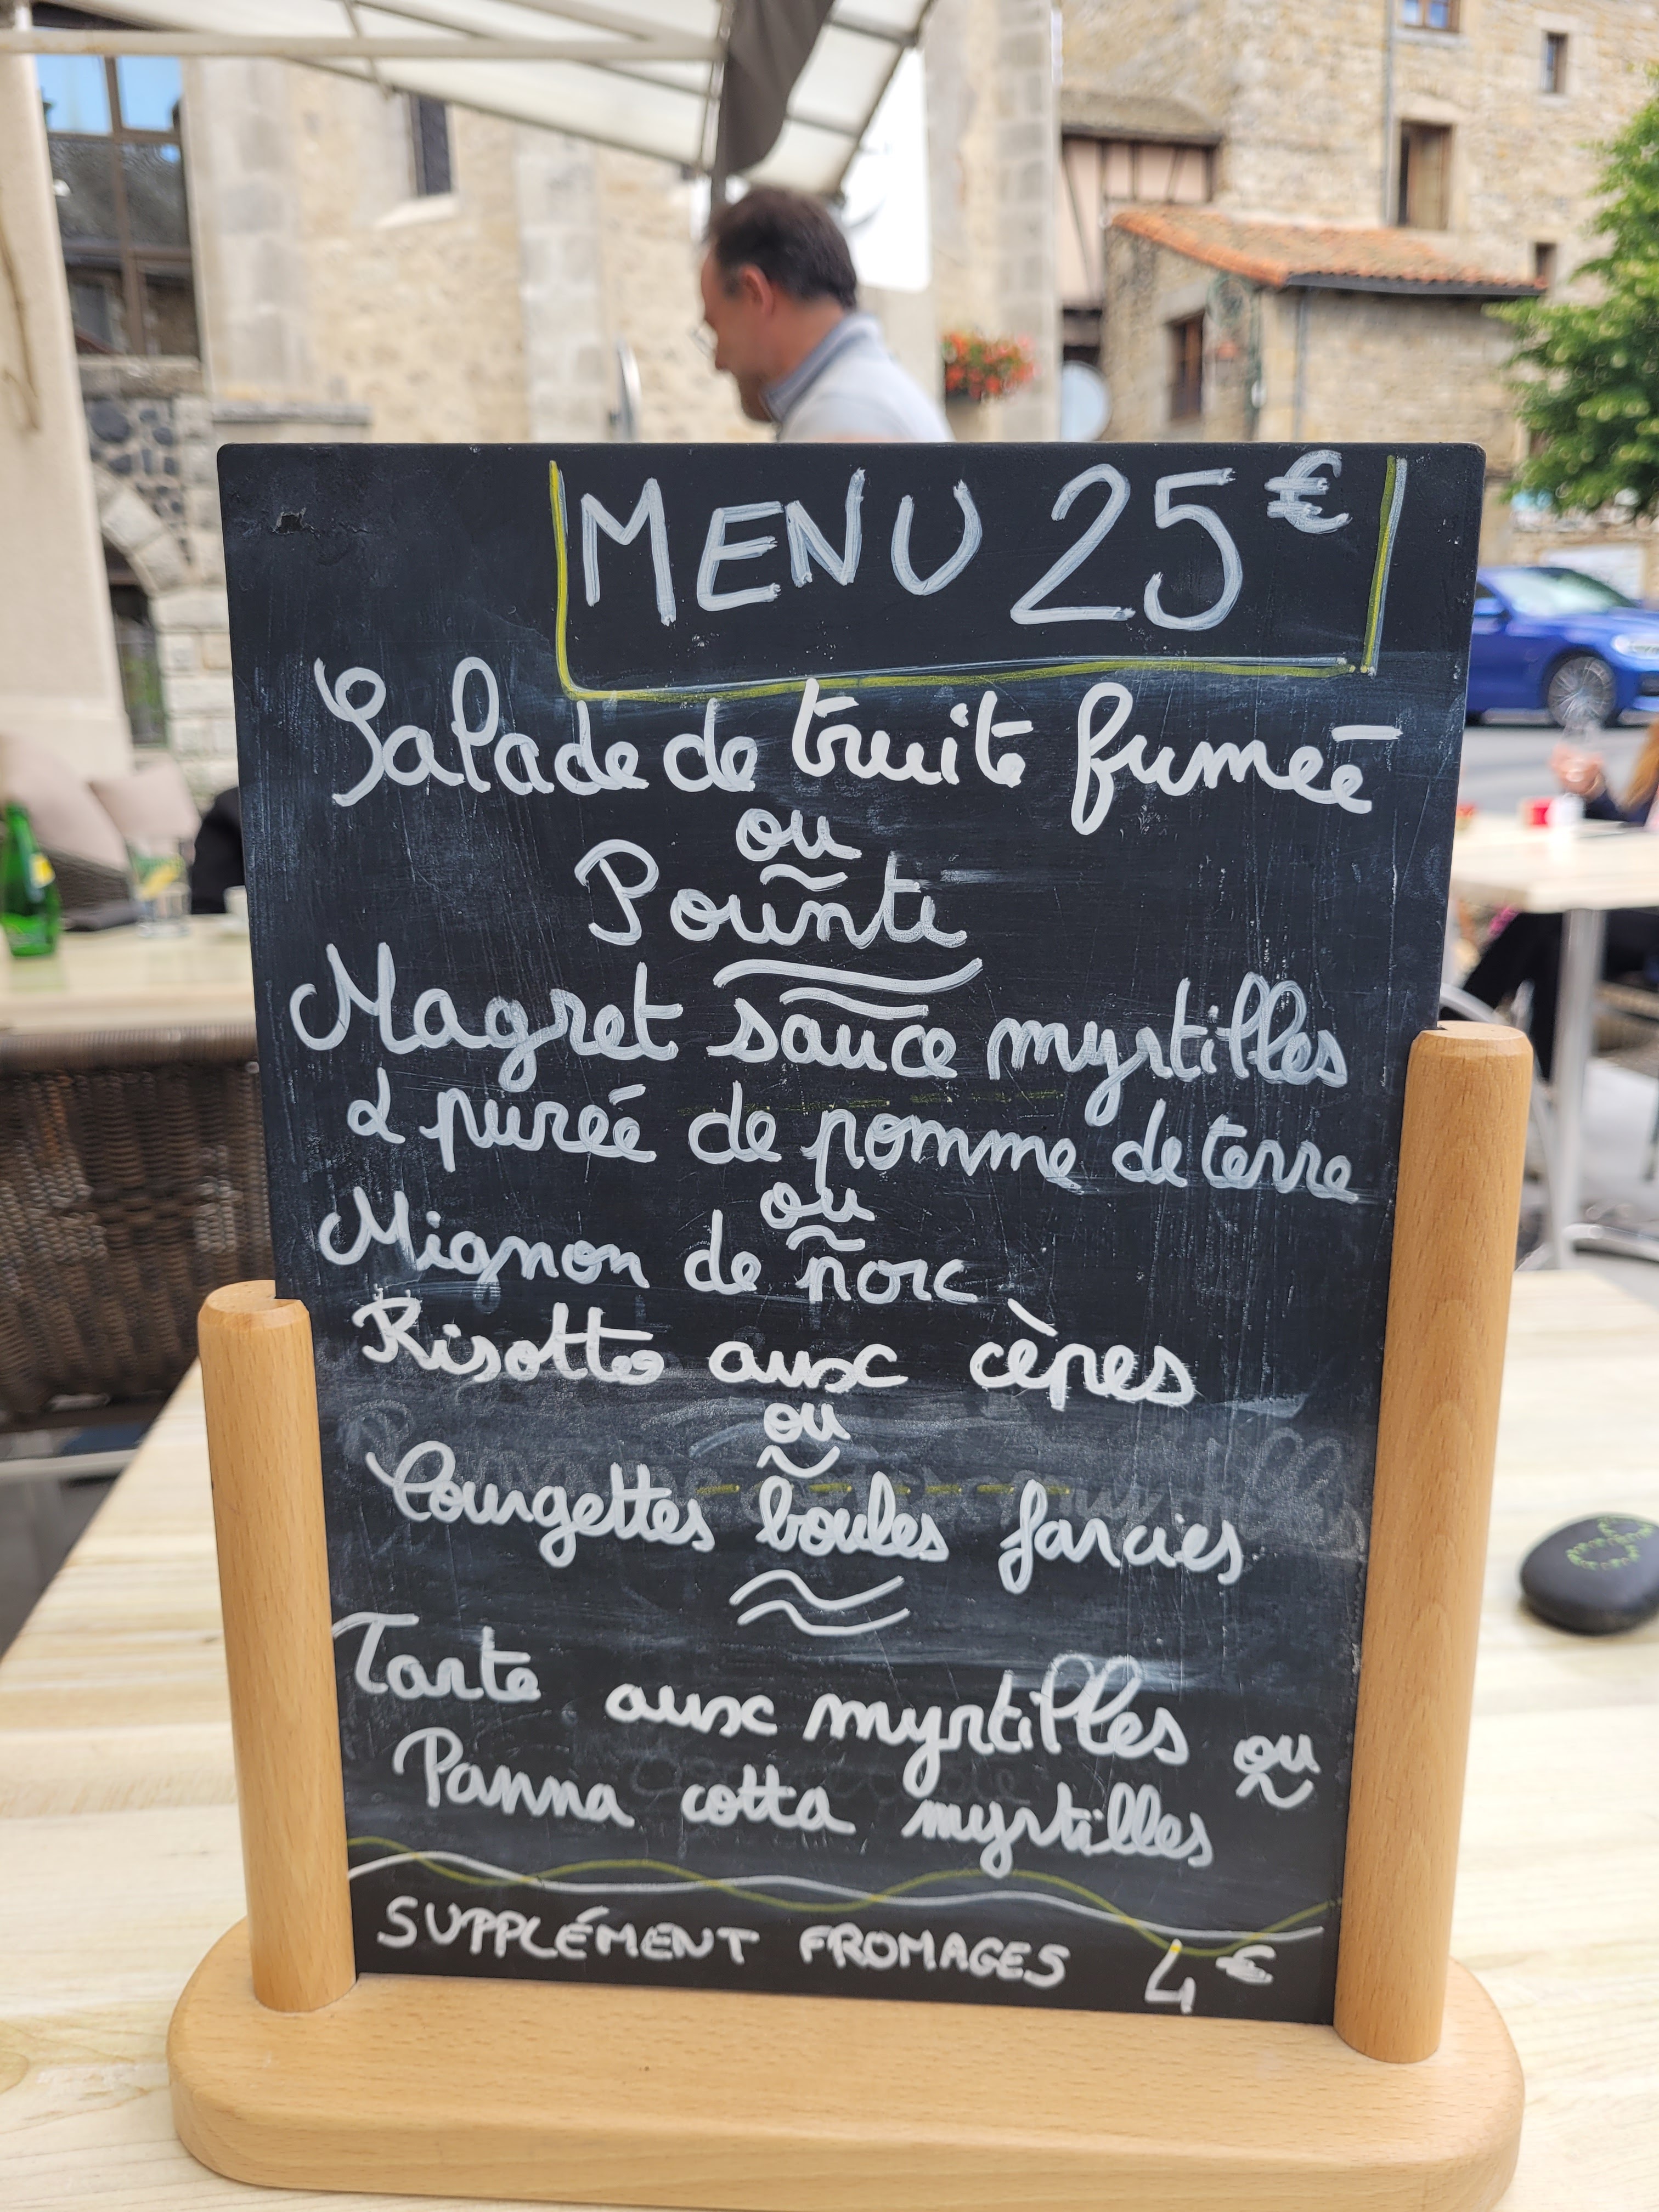 MENU 25€
Salade de truite fumée
ou
Pounti
Magret sauce myrtilles
& purée de pomme de terre
ou
Mignon de porc
Risotto aux cèpes
ou
Courgettes boules farcies
Tarte aux myrtilles ou
Panna cotta myrtilles
SUPPLÉMENT FROMAGES 4€